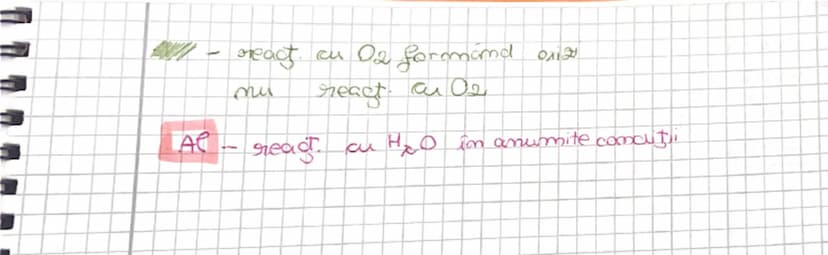 - react. cu O2 formând oxizi
nu react. cu O2
Al - react. cu H2O în anumite condiții